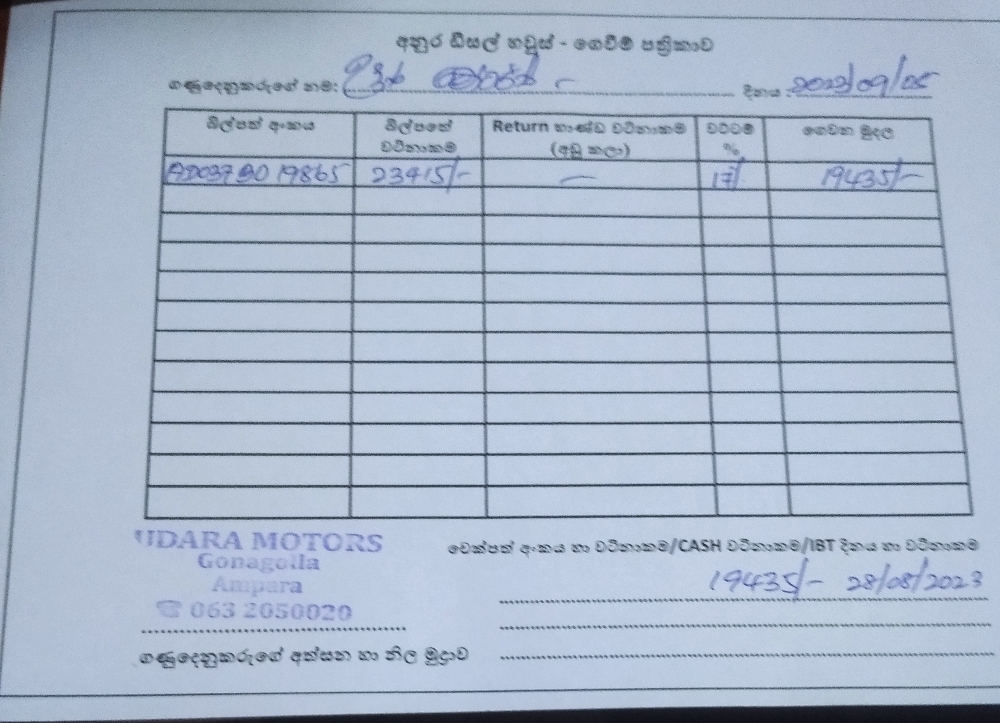 අනුර ඩීසල් හවුස් - ගෙවීම් පත්‍රිකාව
ගණුදෙනුකරුගේ නම: දිනය : 2023/09/05
බිල්පත් අංකය බිල්පතේ වටිනාකම Return භාණ්ඩ වටිනාකම (අඩු කලා) වට්ටම් % ගෙවන මුදල
AD037B019865 23415/- - 17% 19435/-
UDARA MOTORS
Gonagolla
Ampara
☎ 063 2050020
චෙක්පත් අංකය හා වටිනාකම/CASH වටිනාකම/IBT දිනය හා වටිනාකම
19435/- 28/08/2023
ගණුදෙනුකරුගේ අත්සන හා නිල මුද්‍රාව